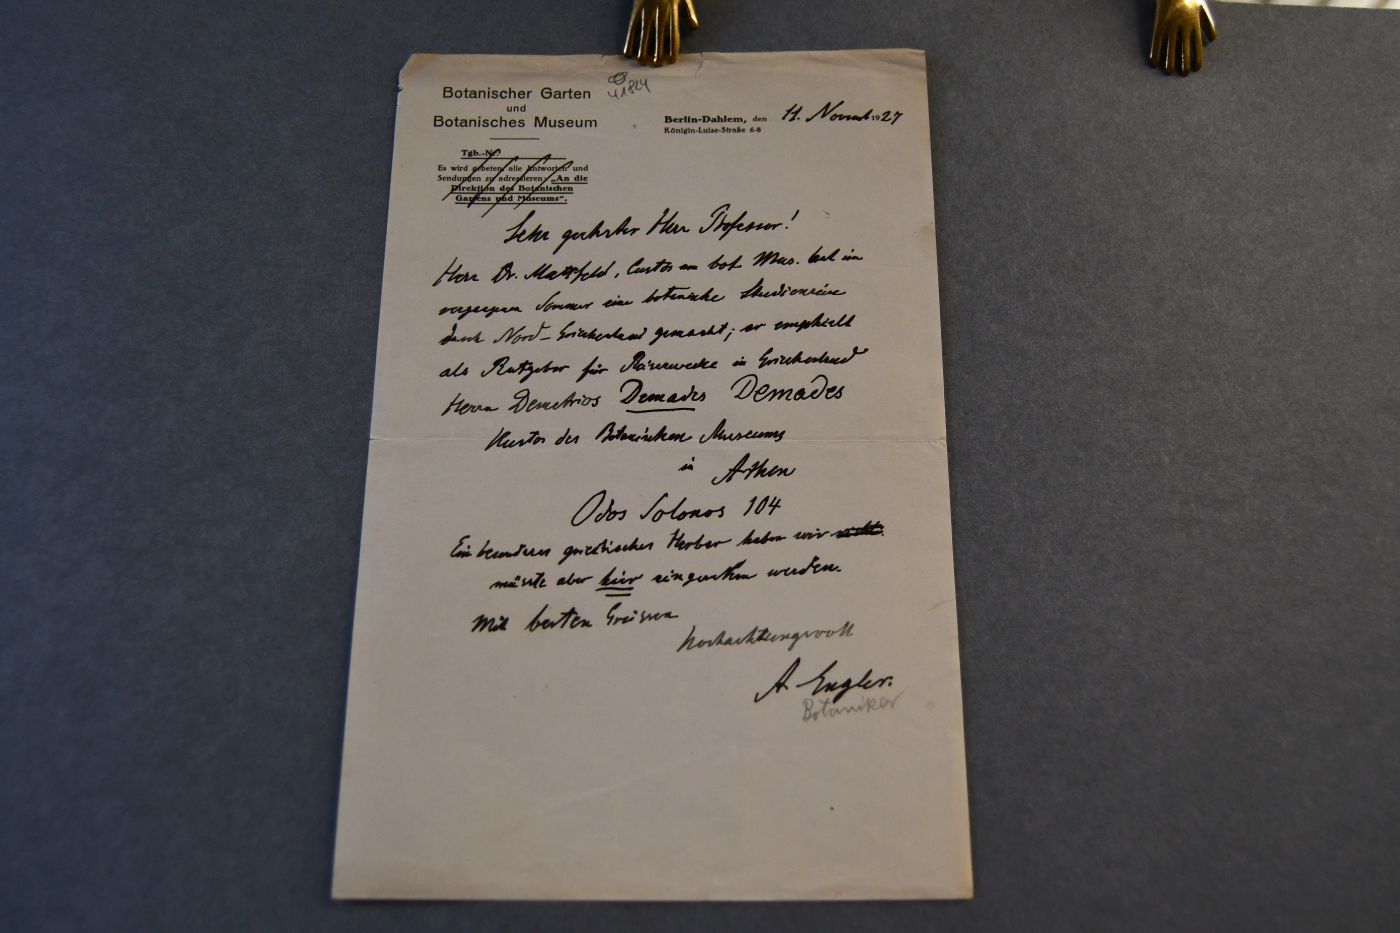 Botanischer Garten
und
Botanisches Museum
41824
Berlin-Dahlem, den 11. Novemb 1927
Königin-Luise-Straße 6-8
Tgb.-Nr.
Es wird gebeten, alle Antworten und
Sendungen zu adressieren: „An die
Direktion des Botanischen
Gartens und Museums“.
Sehr geehrter Herr Professor!
Herr Dr. Mattfeld, Custos am bot. Mus. hat im
vergangenen Sommer eine botanische Studienreise
durch Nord-Griechenland gemacht; er empfiehlt
als Ratgeber für Reisezwecke in Griechenland
Herrn Demetrios Demades Demades
Kustos des Botanischen Museums
in Athen
Odos Solonos 104
Ein besonderes griechisches Herbar haben wir nicht.
müsste aber hier eingesehen werden.
Mit besten Grüssen
Hochachtungsvoll
A. Engler.
Botaniker